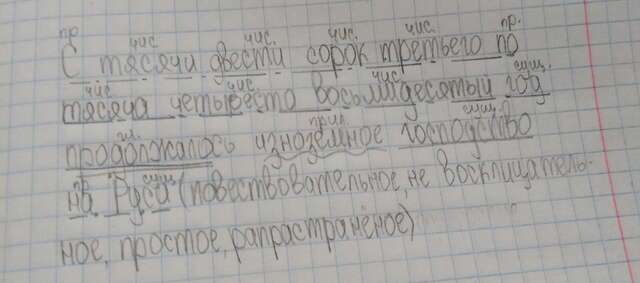 пр. чис. чис. чис. чис. пр.
С тысячи двести сорок третьего по
чис. чис. чис. сущ.
тысяча четыресто восьмидесятый год
гл. прил. сущ.
продолжалось изноземное господство
пр. сущ.
на Руси (повествовательное, не восклицатель-
ное, простое, рапрастранёное)